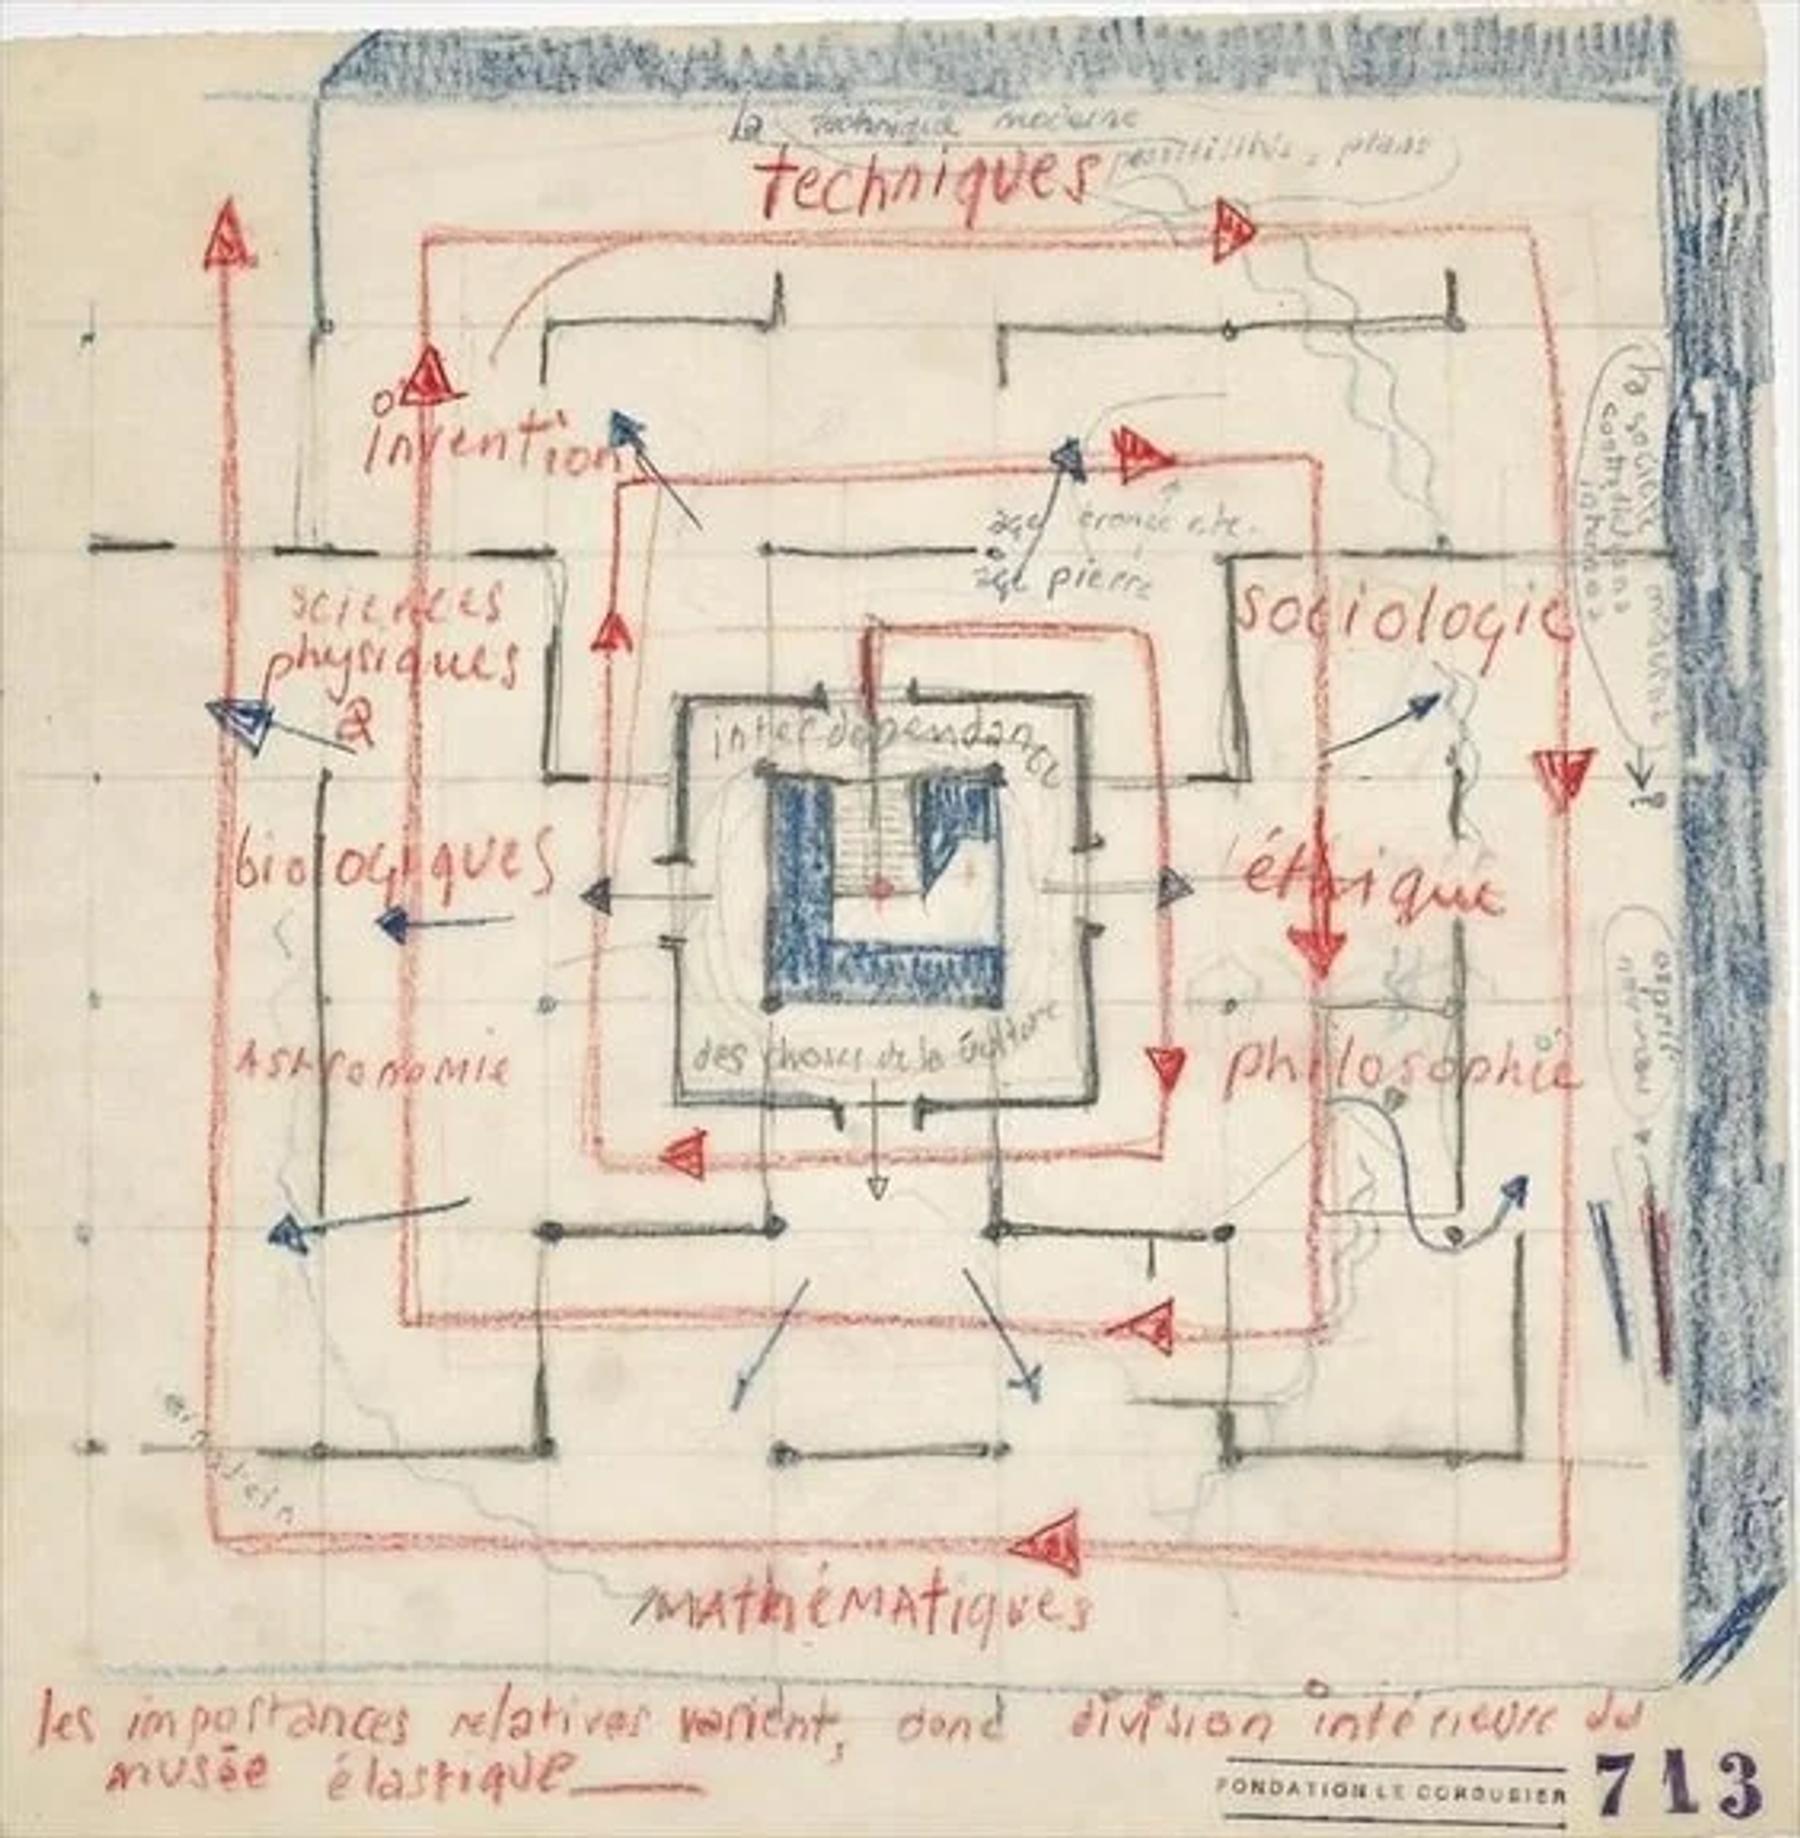 la technique moderne
possibilités, plans
techniques
invention
âge bronze etc.
âge pierre
sciences
physiques
&
sociologie
interdépendance
biologiques
éthique
des choses de la culture
Astronomie
philosophie
einstein
mathématiques
les importances relatives varient, donc division intérieure du
musée élastique
FONDATION LE CORBUSIER 713